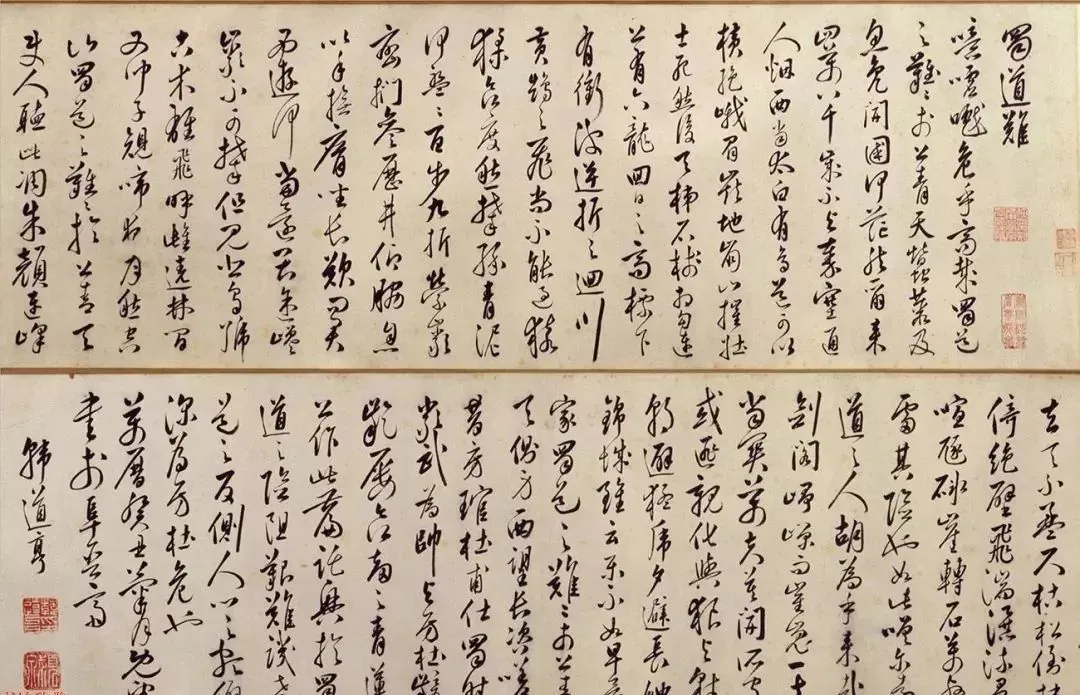 蜀道難
噫嘘嚱危乎高哉蜀道
之難難於上青天蠶叢及
魚鳧開國何茫然爾來
四萬八千歲不與秦塞通
人烟西當太白有鳥道可以
橫絕峨眉巔地崩山摧壯
士死然後天梯石棧相鉤連
上有六龍回日之高標下
有衝波逆折之迴川
黃鶴之飛尚不能過猿
猱欲度愁攀緣青泥
何盤盤百步九折縈巖
巒捫參歷井仰脅息
以手撫膺坐長歎問君
西遊何當還畏途巉
巖不可攀但見悲鳥號
古木雄飛呼雌遶林間
又聞子規啼夜月愁空
山蜀道之難難於上青天
使人聽此凋朱顏連峰
去天不盈尺枯松倒挂
倚絕壁飛湍瀑流爭
喧豗砯崖轉石萬壑
雷其險也如此嗟爾遠
道之人胡為乎來哉
劍閣崢嶸而崔嵬一夫
當關萬夫莫開所守
或匪親化與狼與豺
朝避猛虎夕避長蛇
錦城雖云樂不如早還
家蜀道之難難於上青
天側身西望長咨嗟
昔房琯杜甫仕蜀時
嚴武為帥與房杜
公作此篇託興於蜀
道之險阻艱難識
道之反側人心之
深為房杜危也
萬曆癸丑
書於阜
韓道亨